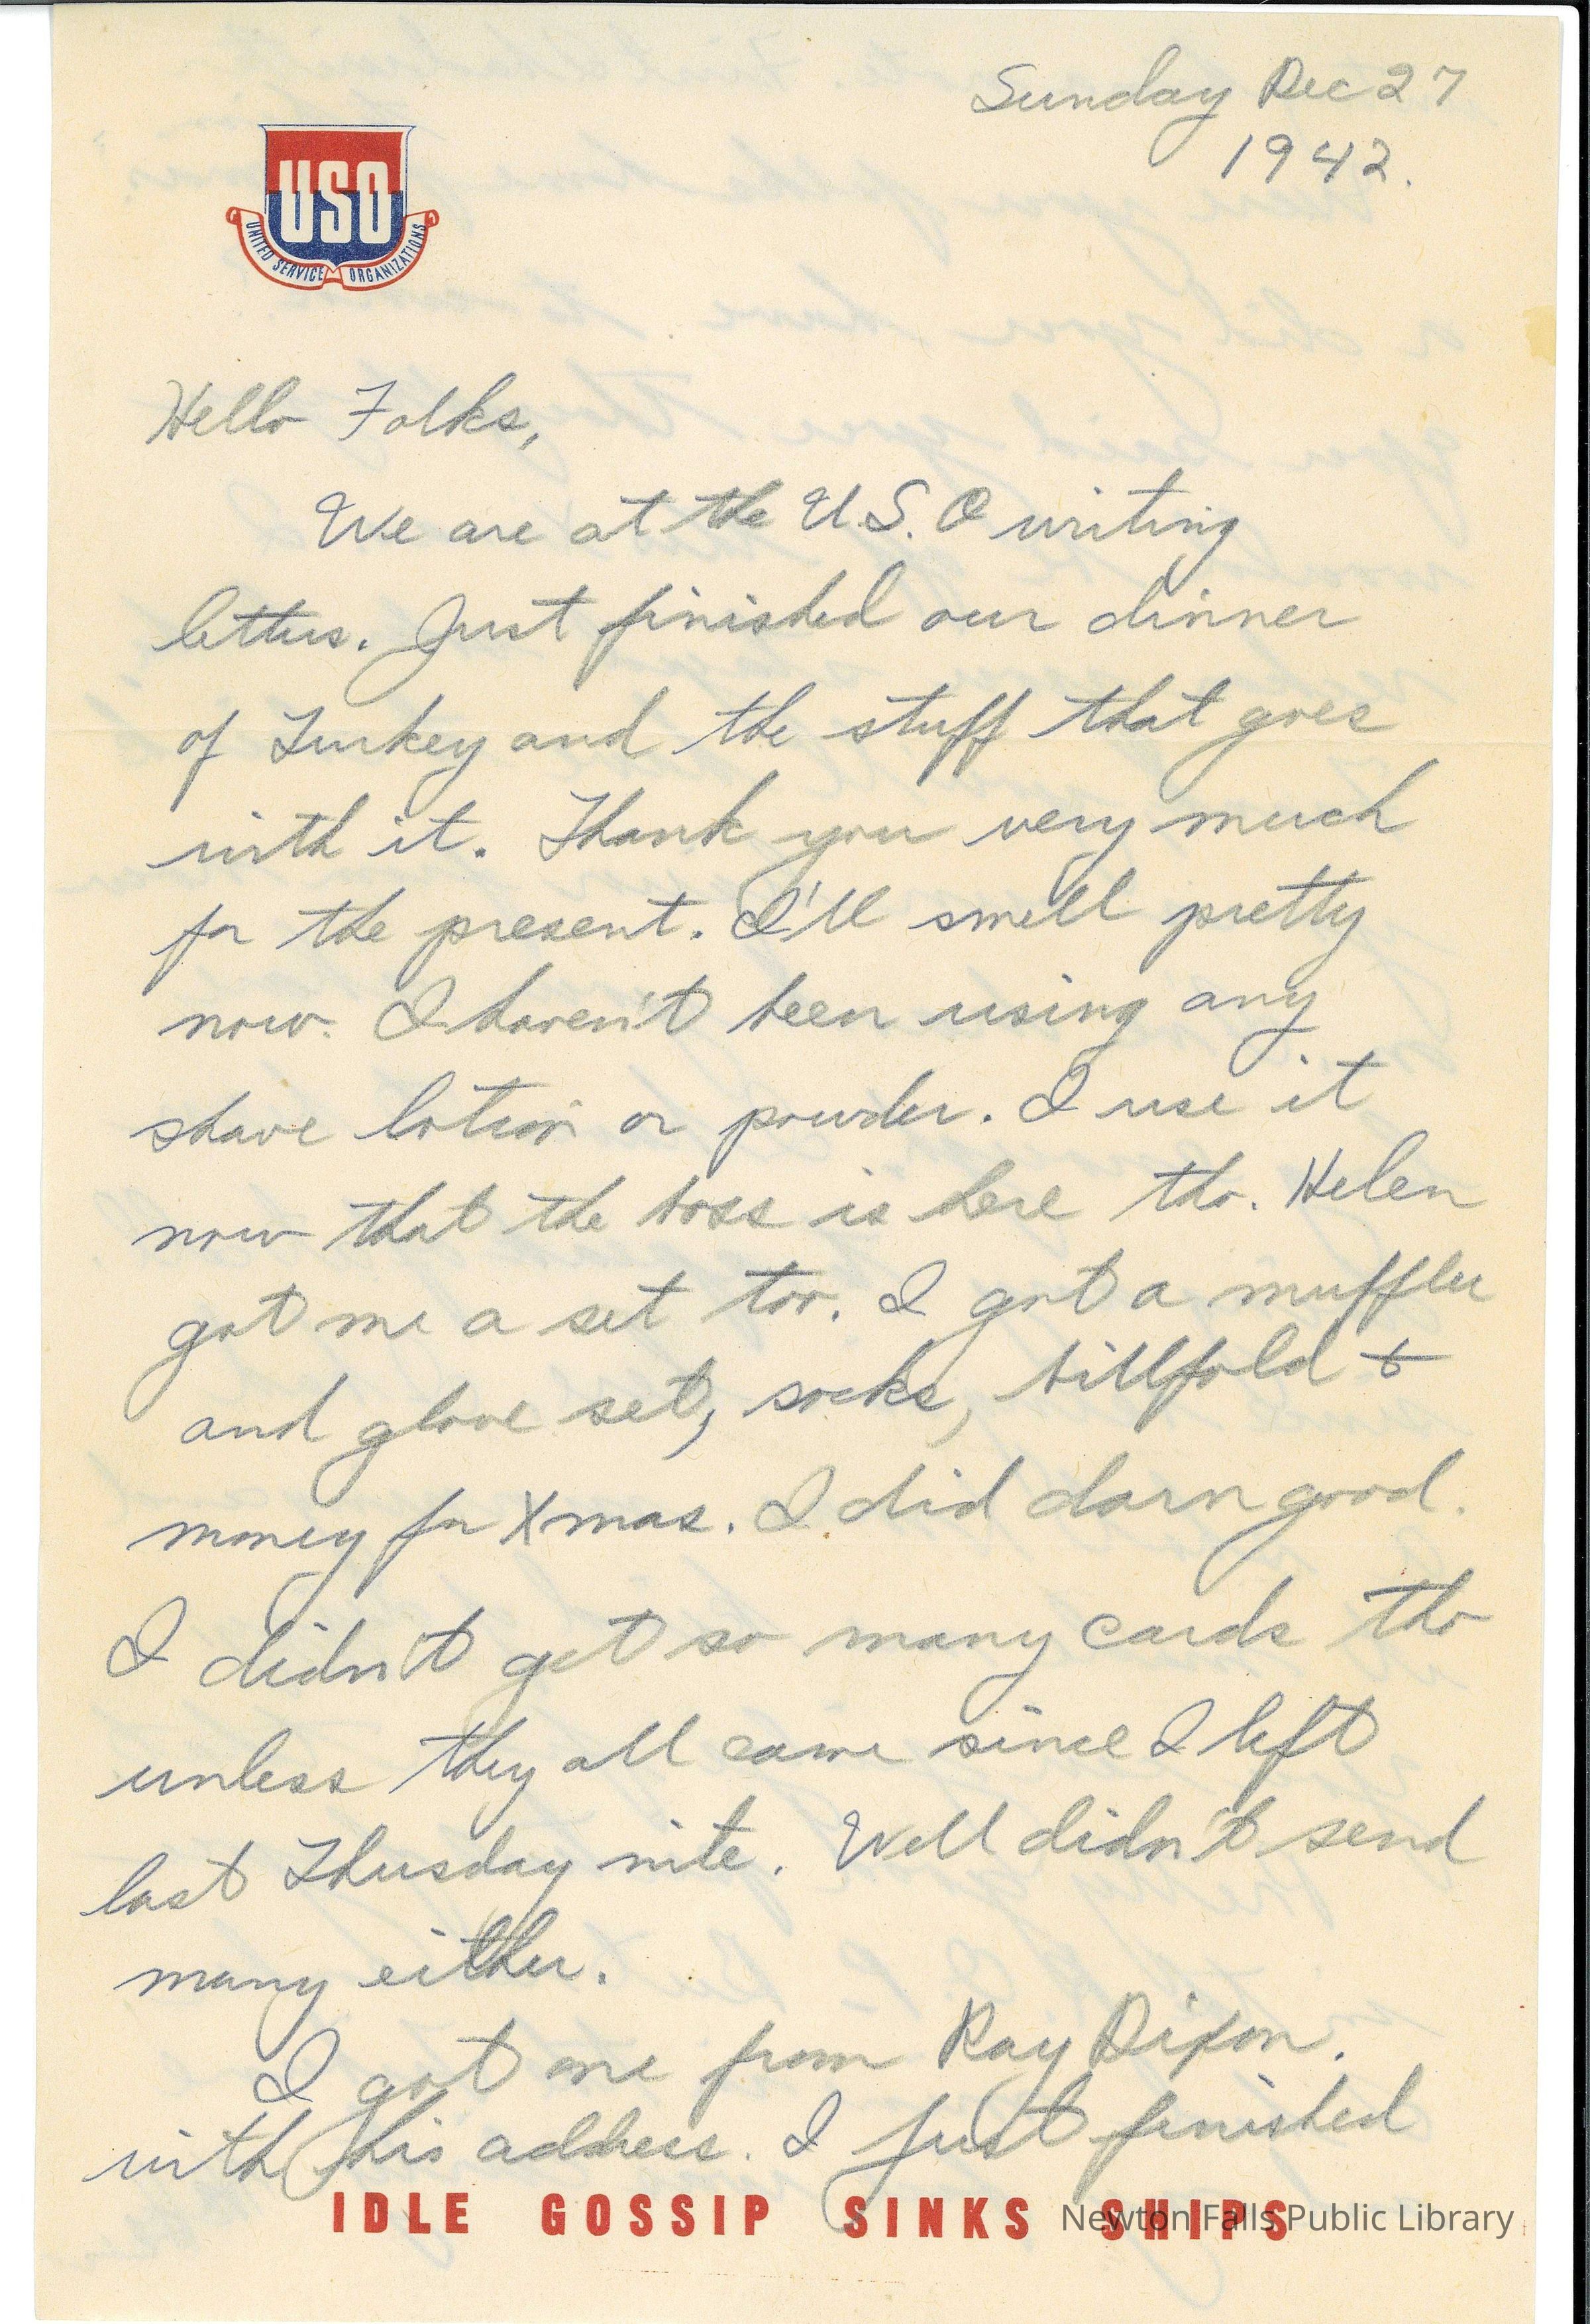 Sunday Dec 27
1942.
USO
UNITED SERVICE ORGANIZATIONS
Hello Folks,
We are at the U.S.O writing
letters. Just finished our dinner
of Turkey and the stuff that goes
with it. Thank you very much
for the present. I'll smell pretty
now. I haven't been using any
shave lotion or powder. I use it
now that the boss is here tho. Helen
got me a set too. I got a muffler
and glove set, socks, billfold &
money for Xmas. I did darn good.
I didn't get so many cards tho
unless they all came since I left
last Thusday nite. Well didn't send
many either.
I got one from Ray Dixon.
with his address. I just finished
IDLE GOSSIP SINKS SHIPS
Newton Falls Public Library